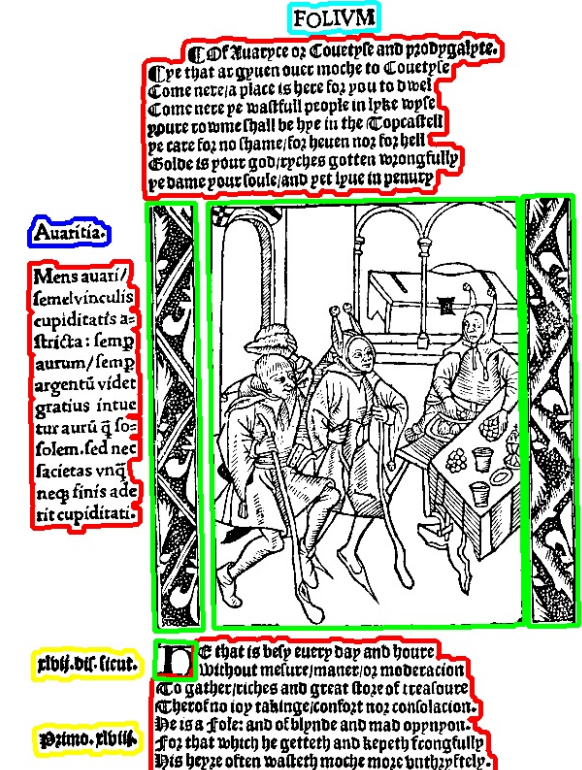 FOLIVM
¶Of Auaryce or Couetyse and prodygalyte.
¶ye that ar gyuen ouer moche to Couetyse
Come nere/a place is here for you to dwel
Come nere ye wastfull people in lyke wyse
youre rowme shall be hye in the Topcastell
ye care for no shame/for heuen nor for hell
Golde is your god/ryches gotten wrongfully
ye dame your soule/and yet lyue in penury
Auaritia.
Mens auari/
semel vinculis
cupiditatis a=
stricta: semꝑ
aurum/semꝑ
argentū videt
gratius intue
tur aurū q̄ so=
lem. sed nec
sacietas vnq̄
neqꝫ finis ade
rit cupiditati.
xlvij.dis. sicut.
HE that is besy euery day and houre
Without mesure/maner/or moderacion
To gather/riches and great store of treasoure
Therof no ioy takinge/confort nor consolacion.
He is a Fole: and of blynde and mad oppnyon.
Primo. xlviij.
For that which he getteth and kepeth fcongfully
His heyre often wasteth moche more vnthryftely.